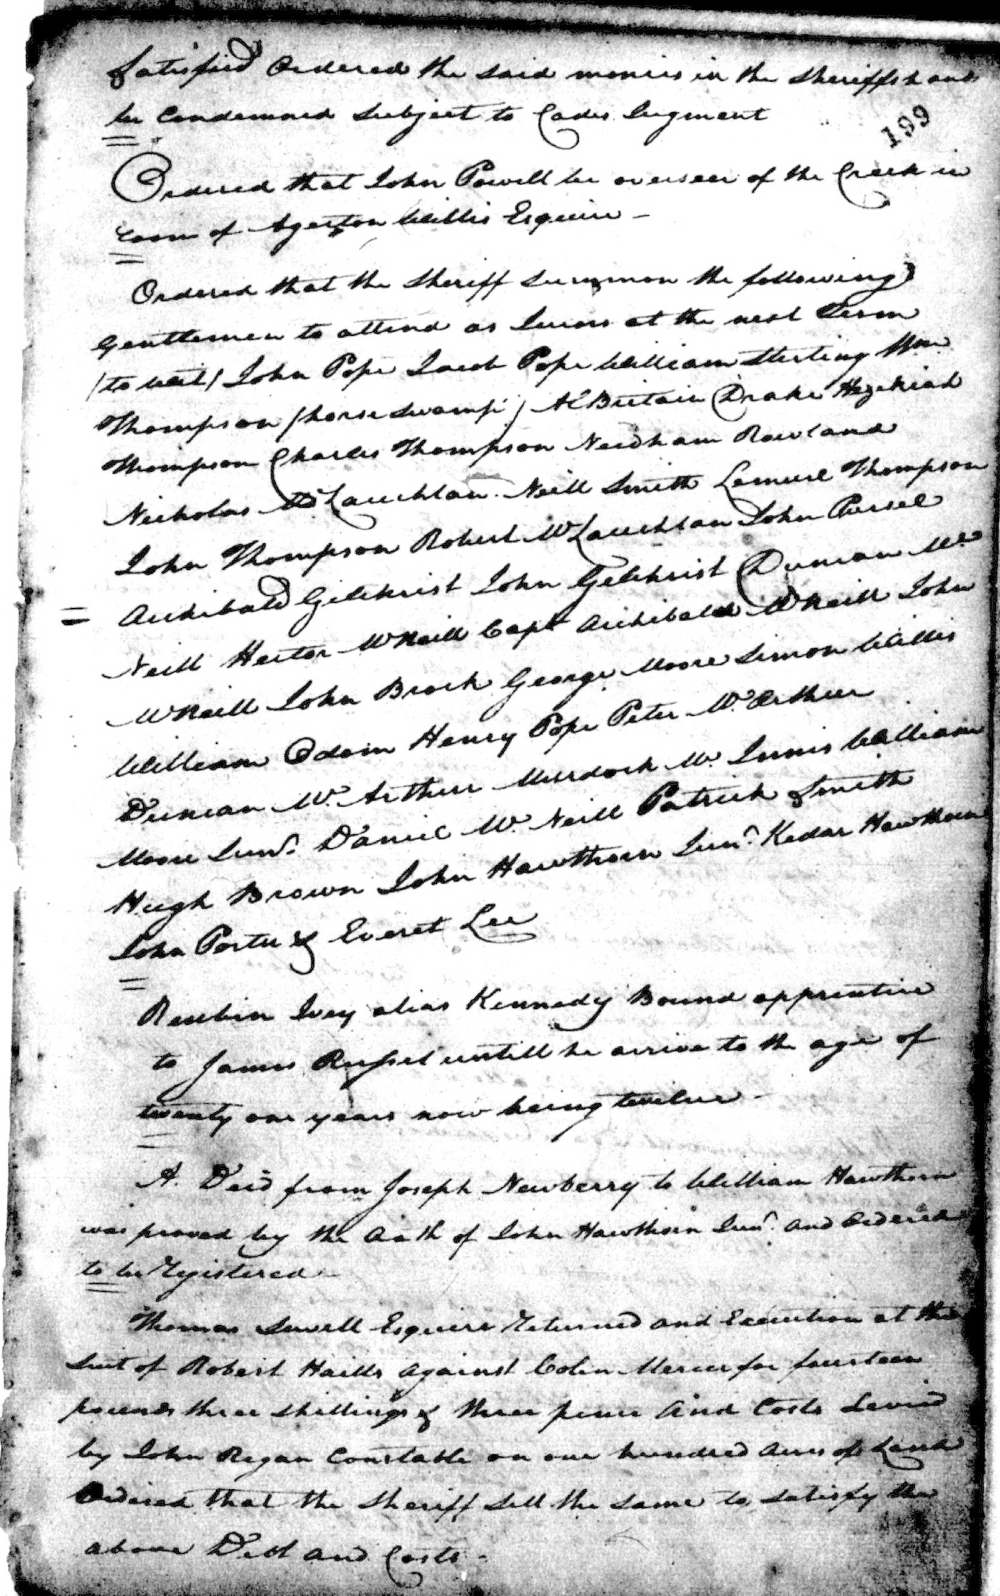 Satisfied Ordered the said monies in the Sheriffs hands
be Condemned Subject to Cades Jugment
199
Ordered that John Powell be overseer of the Creek in
room of Agerton Willis Esquire -
Ordered that the Sheriff Summon the following
Gentlemen to attend as Jurors at the next Term
(to wit) John Pope Jacob Pope William Sterling Wm
Thompson (horse swamp) Britain Drake Hezekiah
Thompson Charles Thompson Needham Rowland
Nickolas McLauchlan. Neill Smith Lemuel Thompson
John Thompson Robert McLauchlan John Pursel
Archibald Gilchrist John Gilchrist Duncan Mc
Neill Hector McNeill Capt Archibald McNeill John
McNeill John Brock George Moore Simon Willis
William Odom Henry Pope Peter Mc.Arthur
Duncan Mc. Arthur Murdock Mc. Innis William
Moore Junr. Daniel Mc. Neill Patrick Smith
Hugh Brown John Hawthorn Junr. Kedar Hawthorn
John Porter & Everet Lee
Reubin Ivey alias Kennedy Bound apprentice
to James Russel untill he arrive to the age of
twenty one years now being twelve -
A. Deed from Joseph Newberry to William Hawthorn
was proved by the Oath of John Hawthorn Junr. and Ordered
to be Registered -
Thomas Sewell Esquire Returned and Execution at the
Suit of Robert Haills against Colin Mercer for fourteen
pounds three Shillings & three pence And Costs Levied
by John Regan Constable on one hundred Acres of Land
Ordered that the Sheriff Sell the Same to Satisfy the
above Debt and Costs -